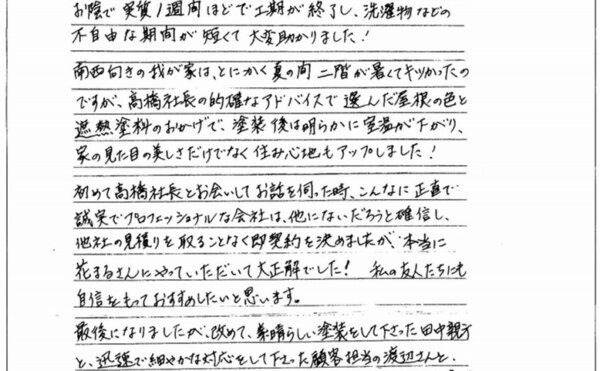 お陰で実質1週間ほどで工期が終了し、洗濯物などの
不自由な期間が短くて大変助かりました！
南西向きの我が家は、とにかく夏の間二階が暑くてキツかったの
ですが、高橋社長の的確なアドバイスで選んだ屋根の色と
遮熱塗料のおかげで、塗装後は明らかに室温が下がり、
家の見た目の美しさだけでなく住み心地もアップしました！
初めて高橋社長とお会いしてお話を伺った時、こんなに正直で
誠実でプロフェッショナルな会社は、他にないだろうと確信し、
他社の見積りを取ることなく即契約を決めましたが、本当に
花まるさんにやっていただいて大正解でした！ 私の友人たちにも
自信をもっておすすめしたいと思います。
最後になりましたが、改めて、素晴らしい塗装をして下さった田中親方
と、迅速で細やかな対応をして下さった顧客担当の渡辺さんと、